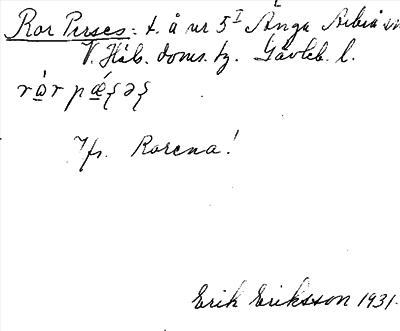 Ror Perses: t. å nr 5¹ Änga Arbrå sn
V. Häls. doms. tg. Gävleb. l.
Jfr. Rorena!
Erik Eriksson 1931.